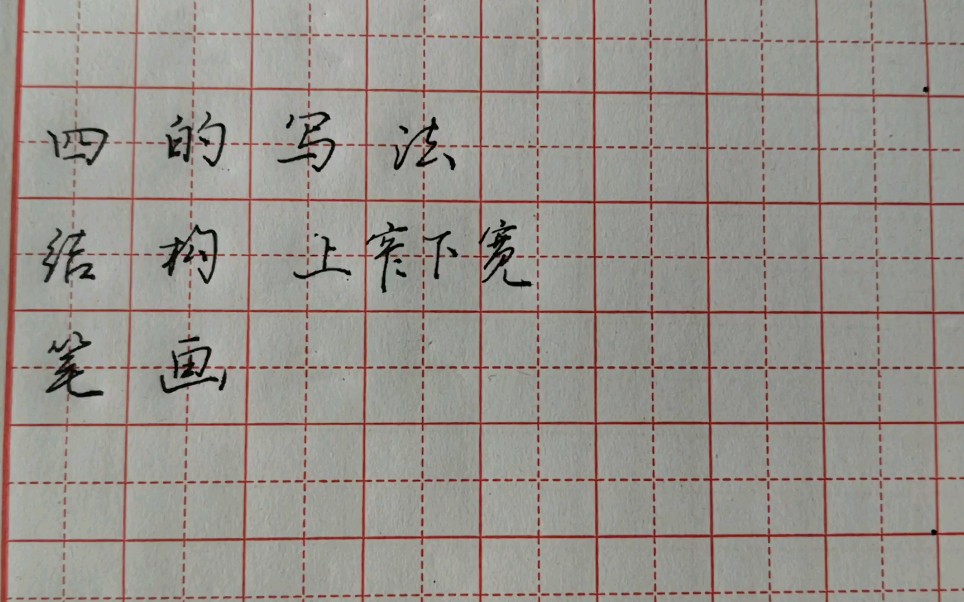 四的写法
结构 上窄下宽
笔画